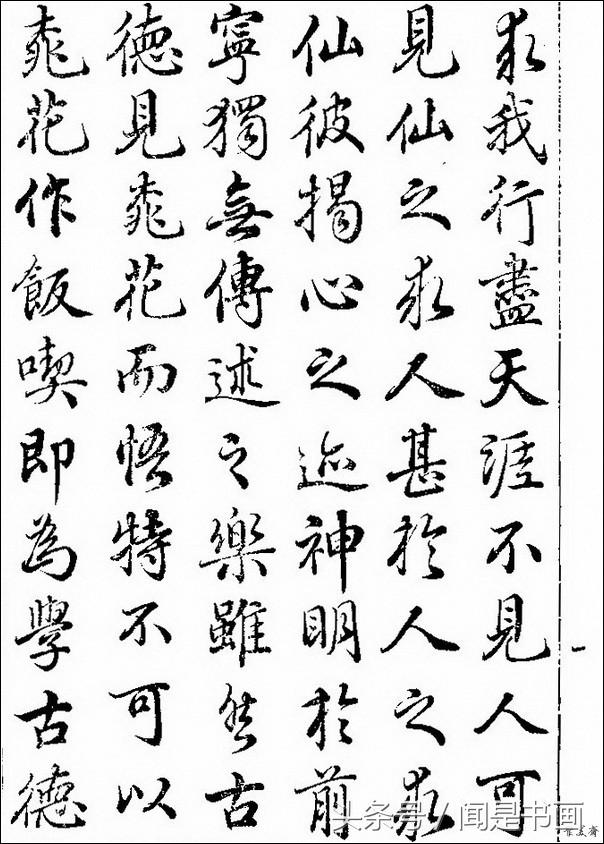 求我行盡天涯不見人可
見仙之求人甚於人之求
仙彼揭心之迹神明於前
寧獨無傳述之樂雖然古
德見桃花而悟特不可以
桃花作飯喫即為學古德
头条号 / 闻是书画